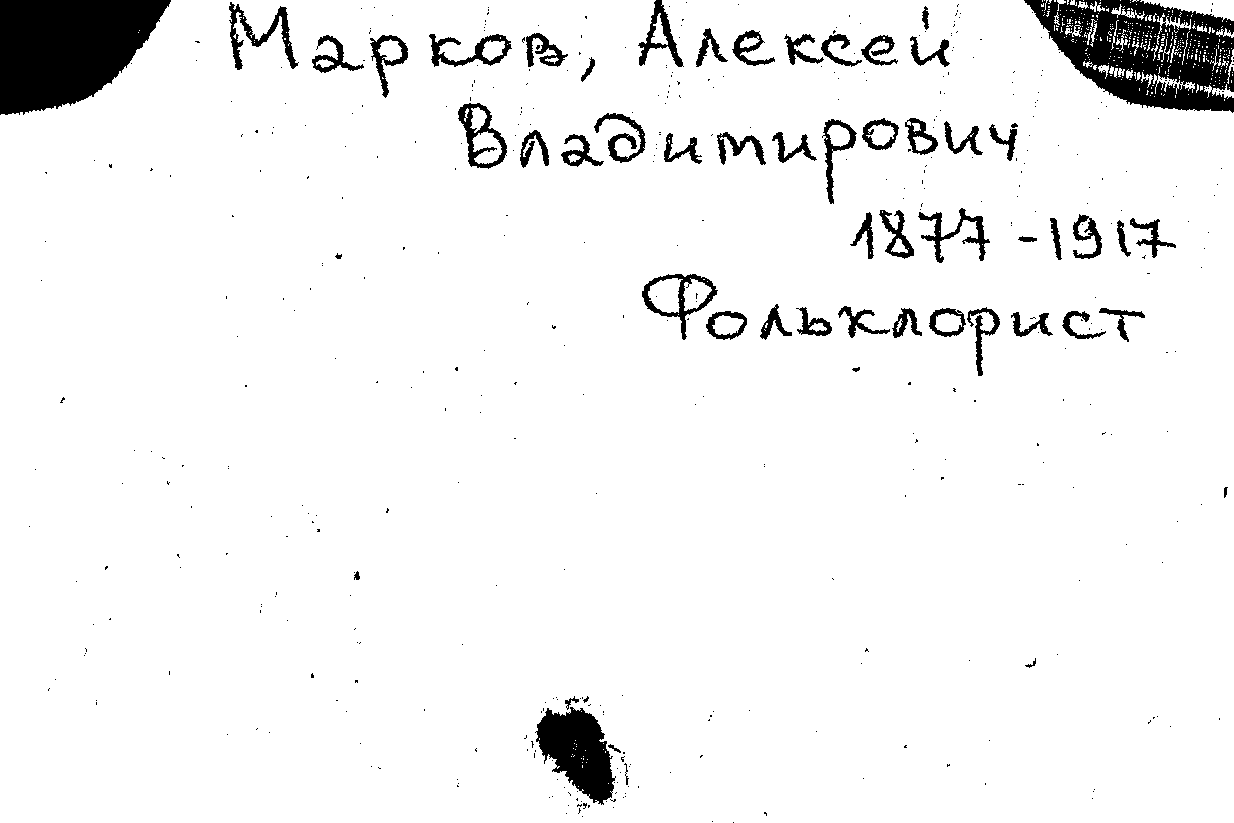 Марков, Алексей
Владимирович
1877-1917
Фольклорист